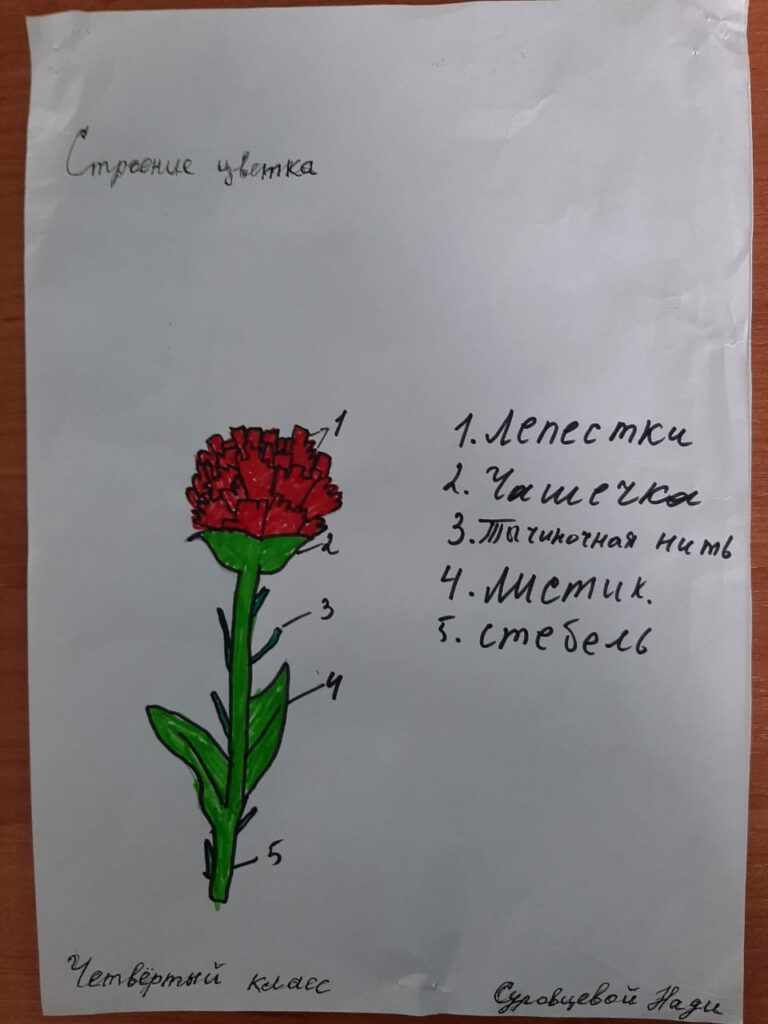 Строение цветка
1
2
3
4
5
1. Лепестки
2. Чашечка
3. Тычиночная нить
4. Листик.
5. стебель
Четвёртый класс
Суровцевой Нади